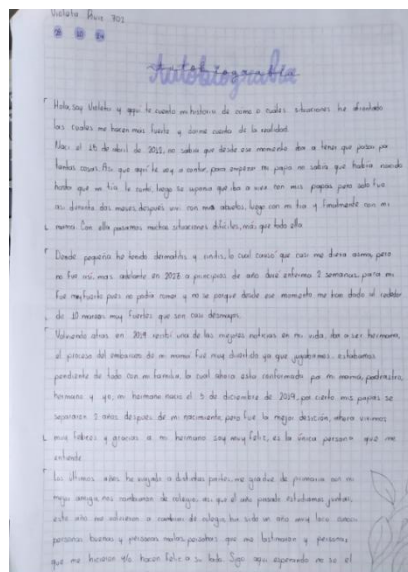 Violeta Ruiz 701
Autobiografia
Hola, soy Violeta y aqui te cuento mi historia de como o cuales situaciones he afrontado
las cuales me hacen mas fuerte y darme cuenta de la realidad.
Naci el 15 de abril de 2012, no sabia que desde ese momento iba a tener que pasar por
tantas cosas. Asi que aqui te voy a contar, para empezar mi papa no sabia que habia nacido
hasta que mi tia le conto, luego se suponia que iba a vivir con mis papas pero solo fue
asi durante dos meses, después vivi con mis abuelos, luego con mi tia y finalmente con mi
mama. Con ella pasamos muchas situaciones dificiles, más que todo ella.
Desde pequeña he tenido dermatitis y rinitis, lo cual causó que casi me diera asma, pero
no fue asi. mas adelante en 2023 a principios de año duré enferma 2 semanas, para mi
fue muy fuerte pues no podia comer y no se porque desde ese momento me han dado al rededor
de 10 mareos muy fuertes que son casi desmayos.
Volviendo atras en 2019 recibi una de las mejores noticias en mi vida, iba a ser hermana,
el proceso del embarazo de mi mamá fue muy divertido ya que jugabamos, estabamos
pendiente de todo con mi familia, la cual ahora esta conformada por mi mamá, padrastro,
hermano y yo, mi hermano nacio el 5 de diciembre de 2019, por cierto mis papas se
separaron 2 años despues de mi nacimiento, pero fue la mejor desición, ahora vivimos
muy felices y gracias a mi hermano soy muy feliz, es la única persona que me
entiende.
Los últimos años he viajado a distintas partes, me gradue de primaria con mi
mejor amiga, nos cambiaron de colegio, asi que el año pasado estudiamos juntas,
este año me volvieron a cambiar de colegio, ha sido un año muy loco conoci
personas buenas y personas malas, personas que me lastimaron y personas
que me hicieron y/o hacen feliz a su lado. Sigo aqui esperando no se el